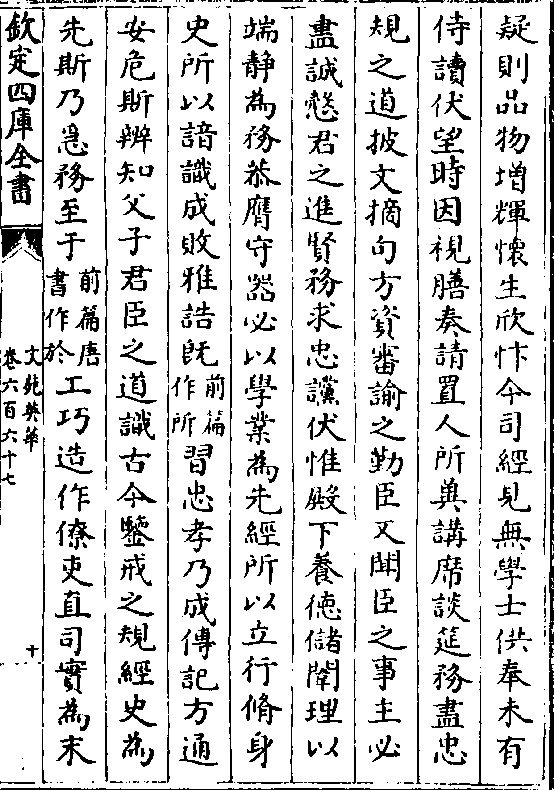 疑則品物增輝懷生欣忭今司經見無學士供奉未有
侍讀伏望時因視膳奏請置人所冀講席談筵務盡忠
規之道披文摘句方資審諭之勤臣又聞臣之事主必
盡誠慤君之進賢務求忠讜伏惟殿下養德儲闈理以
端静為務恭膺守器必以學業為先經所以立行脩身
史所以諳識成敗雅誥既前篇作所習忠孝乃成傳記方通
安危斯辨知父子君臣之道識古今鑒戒之規經史為
先斯乃急務至于前篇唐書作於工巧造作僚吏直司實為末
欽定四庫全書
文苑英華
卷六百六十七
十